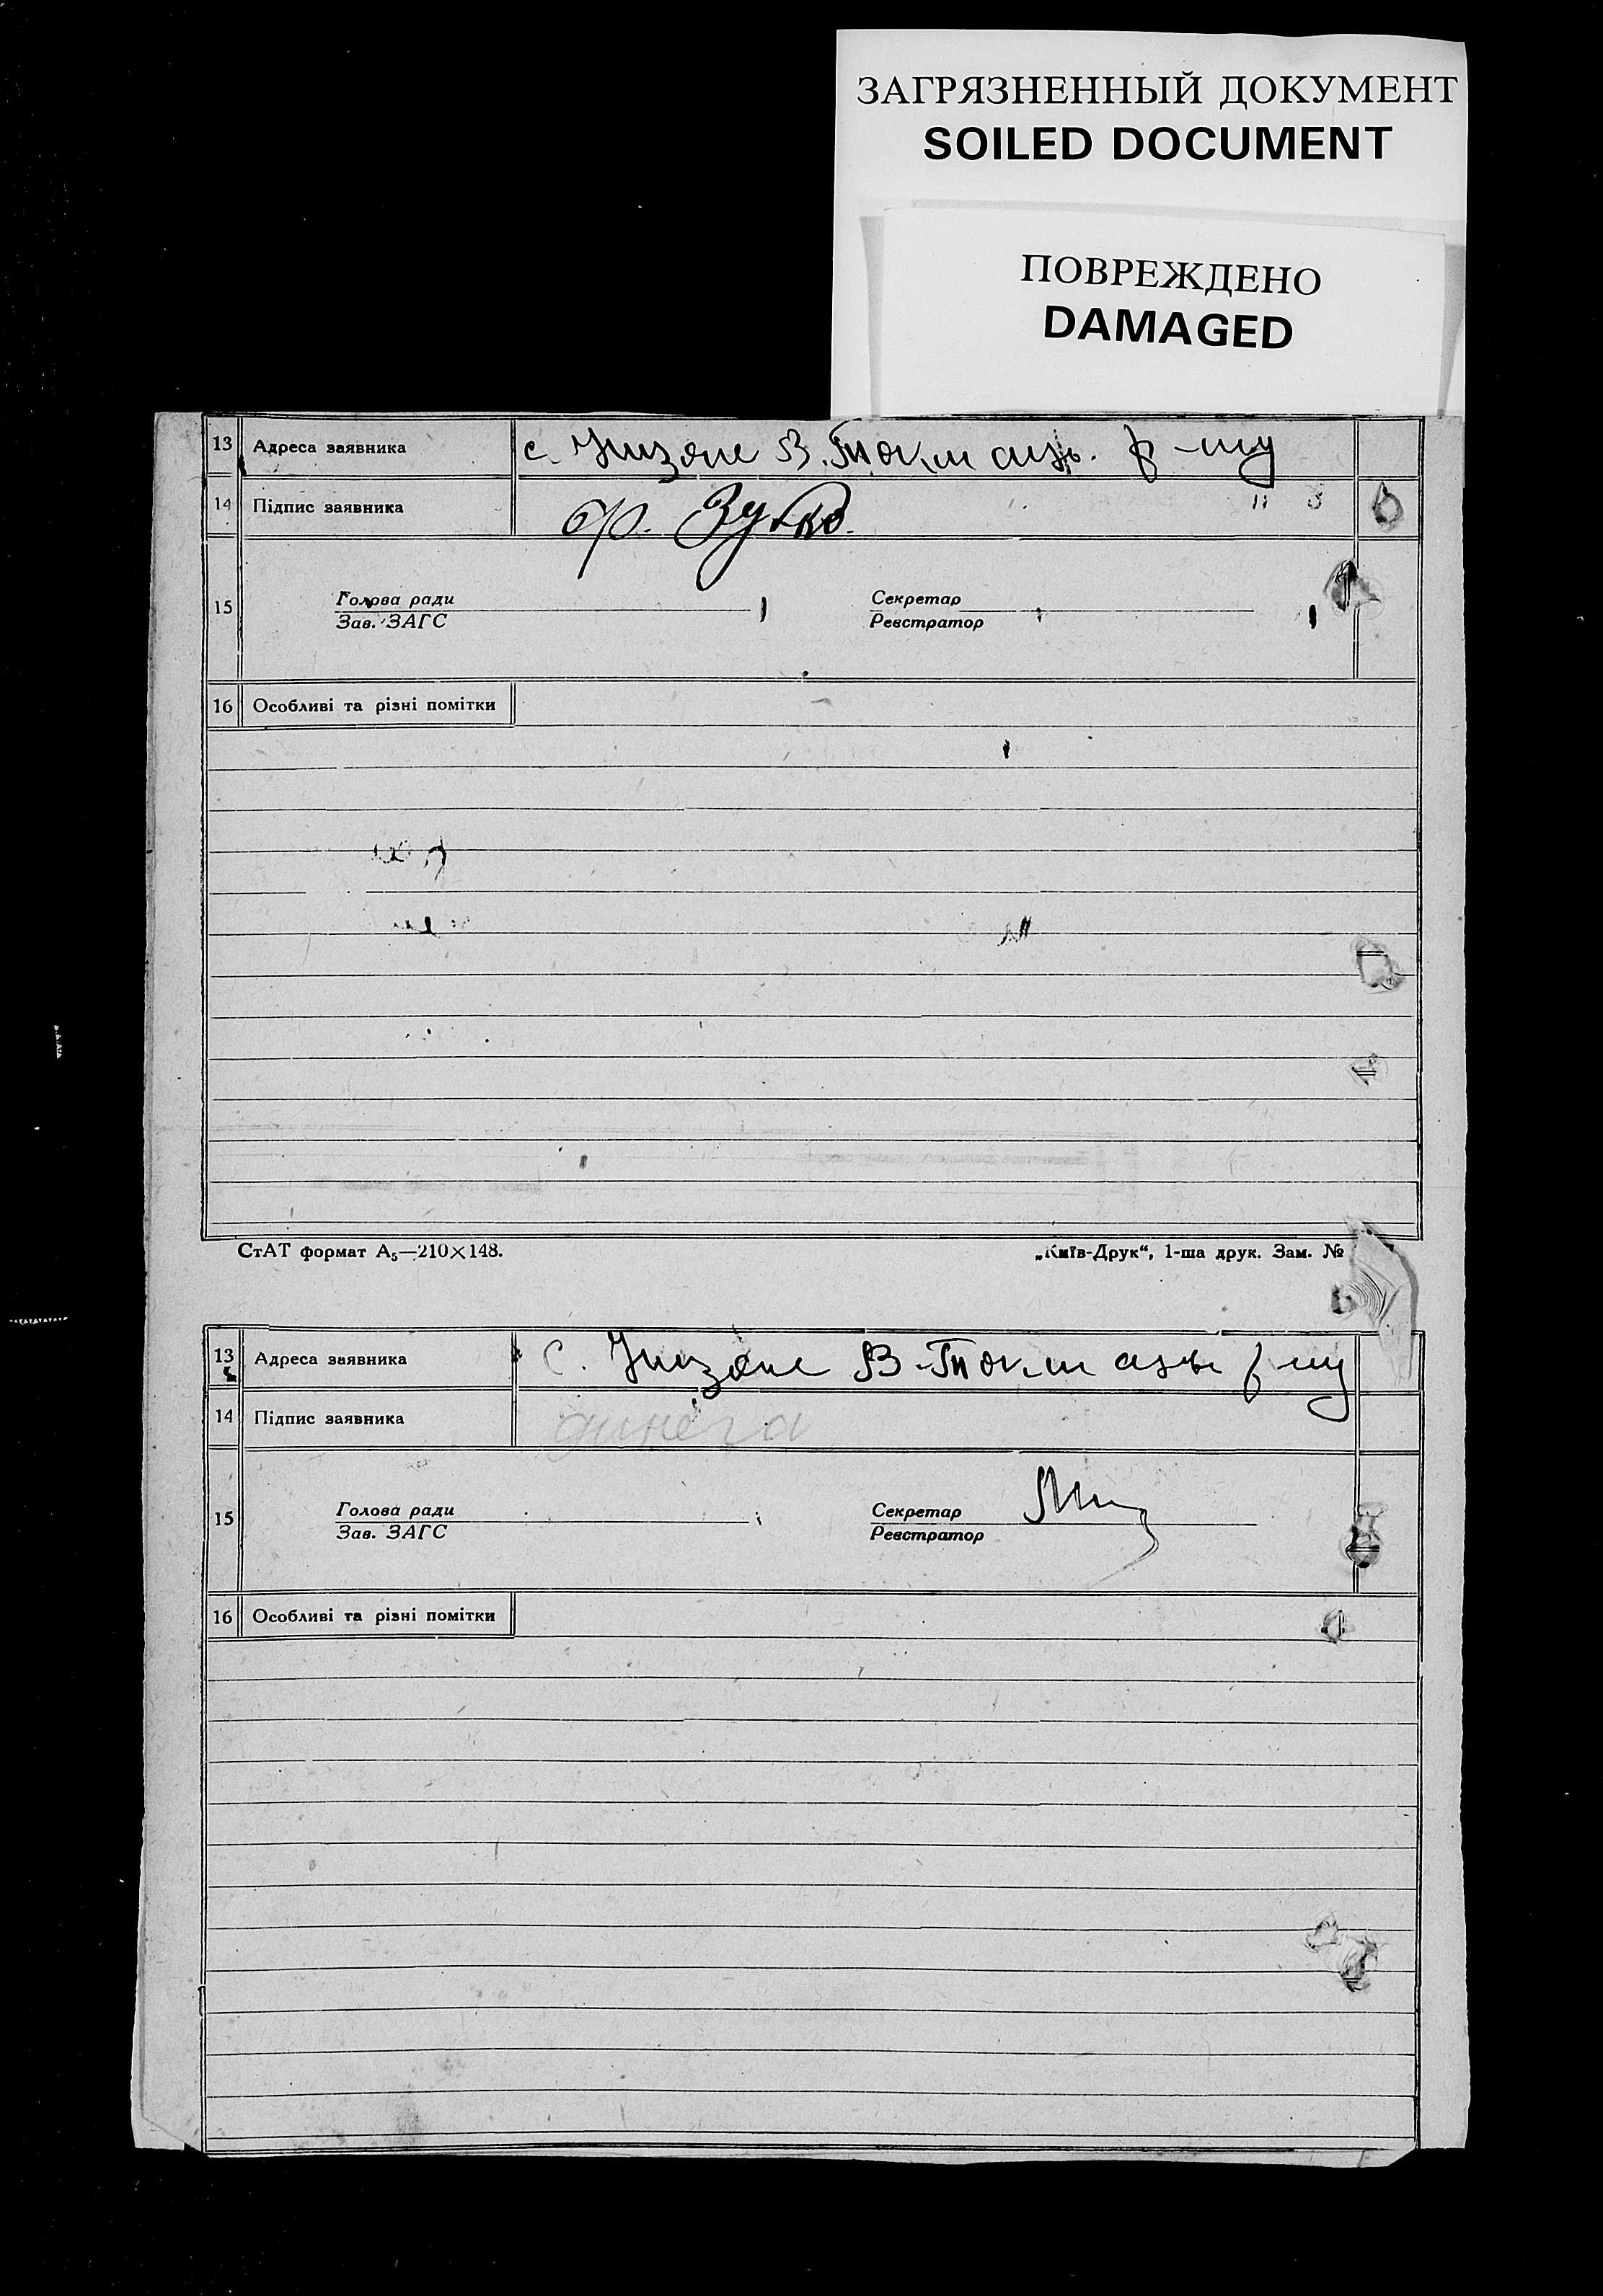 ЗАГРЯЗНЕННЫЙ ДОКУМЕНТ
SOILED DOCUMENT
ПОВРЕЖДЕНО
DAMAGED
13 Адреса заявника с. В. Токмацьк. р-ну
14 Підпис заявника
15 Голова ради Секретар
Зав. ЗАГС Реєстратор
16 Особливі та різні помітки
СтАТ формат А₅—210×148. „Київ-Друк“, 1-ша друк. Зам. №
13 Адреса заявника с. В-Токмацьк р-ну
14 Підпис заявника
15 Голова ради Секретар
Зав. ЗАГС Реєстратор
16 Особливі та різні помітки